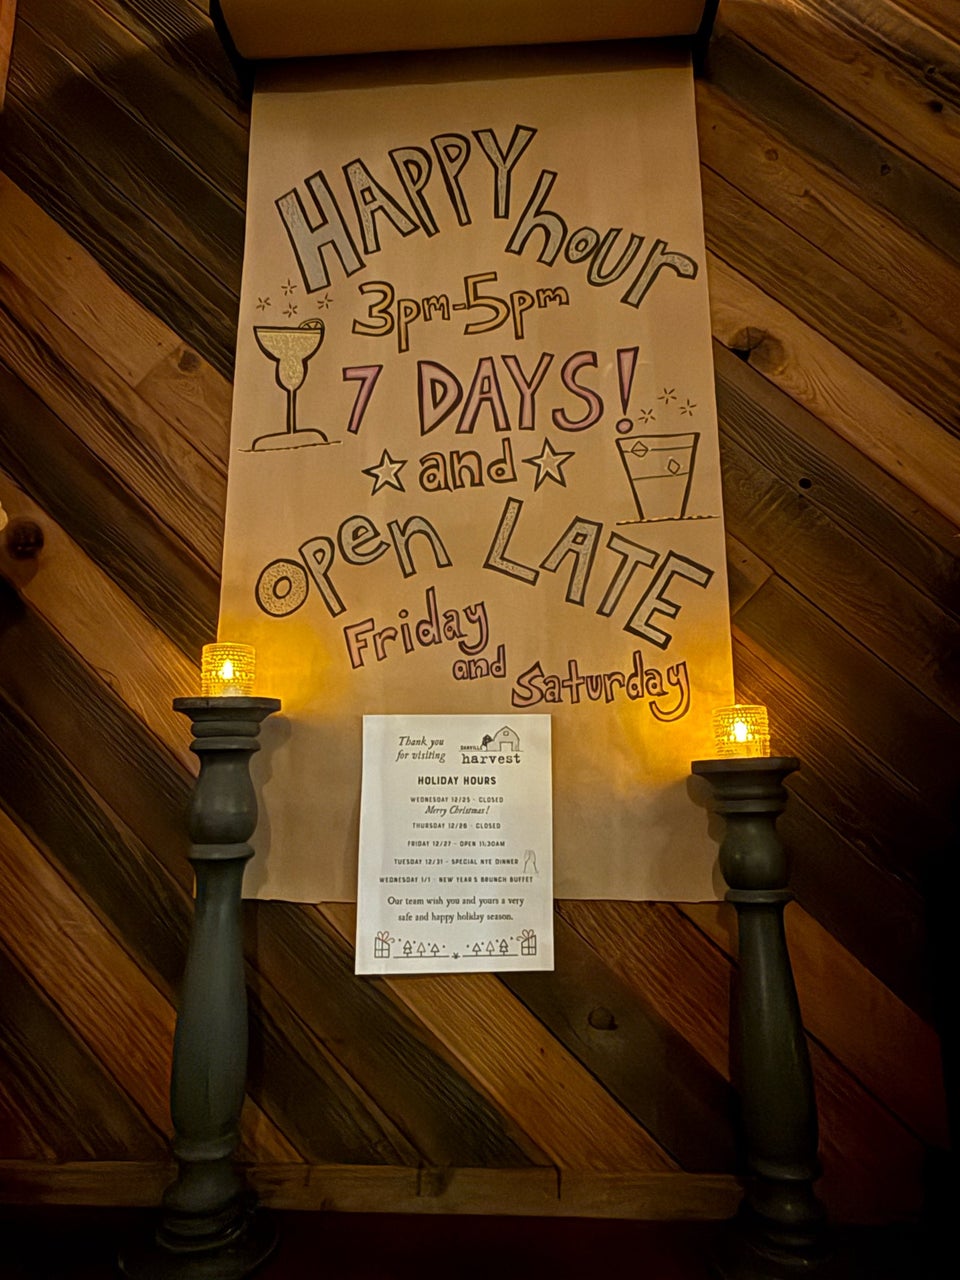 HAPPY hour
3pm-5pm
7 DAYS!
and
open LATE
Friday
and
Saturday
Thank you
for visiting
DANVILLE
harvest
HOLIDAY HOURS
WEDNESDAY 12/25 - CLOSED
Merry Christmas!
THURSDAY 12/26 - CLOSED
FRIDAY 12/27 - OPEN 11:30AM
TUESDAY 12/31 - SPECIAL NYE DINNER
WEDNESDAY 1/1 - NEW YEAR'S BRUNCH BUFFET
Our team wish you and yours a very
safe and happy holiday season.